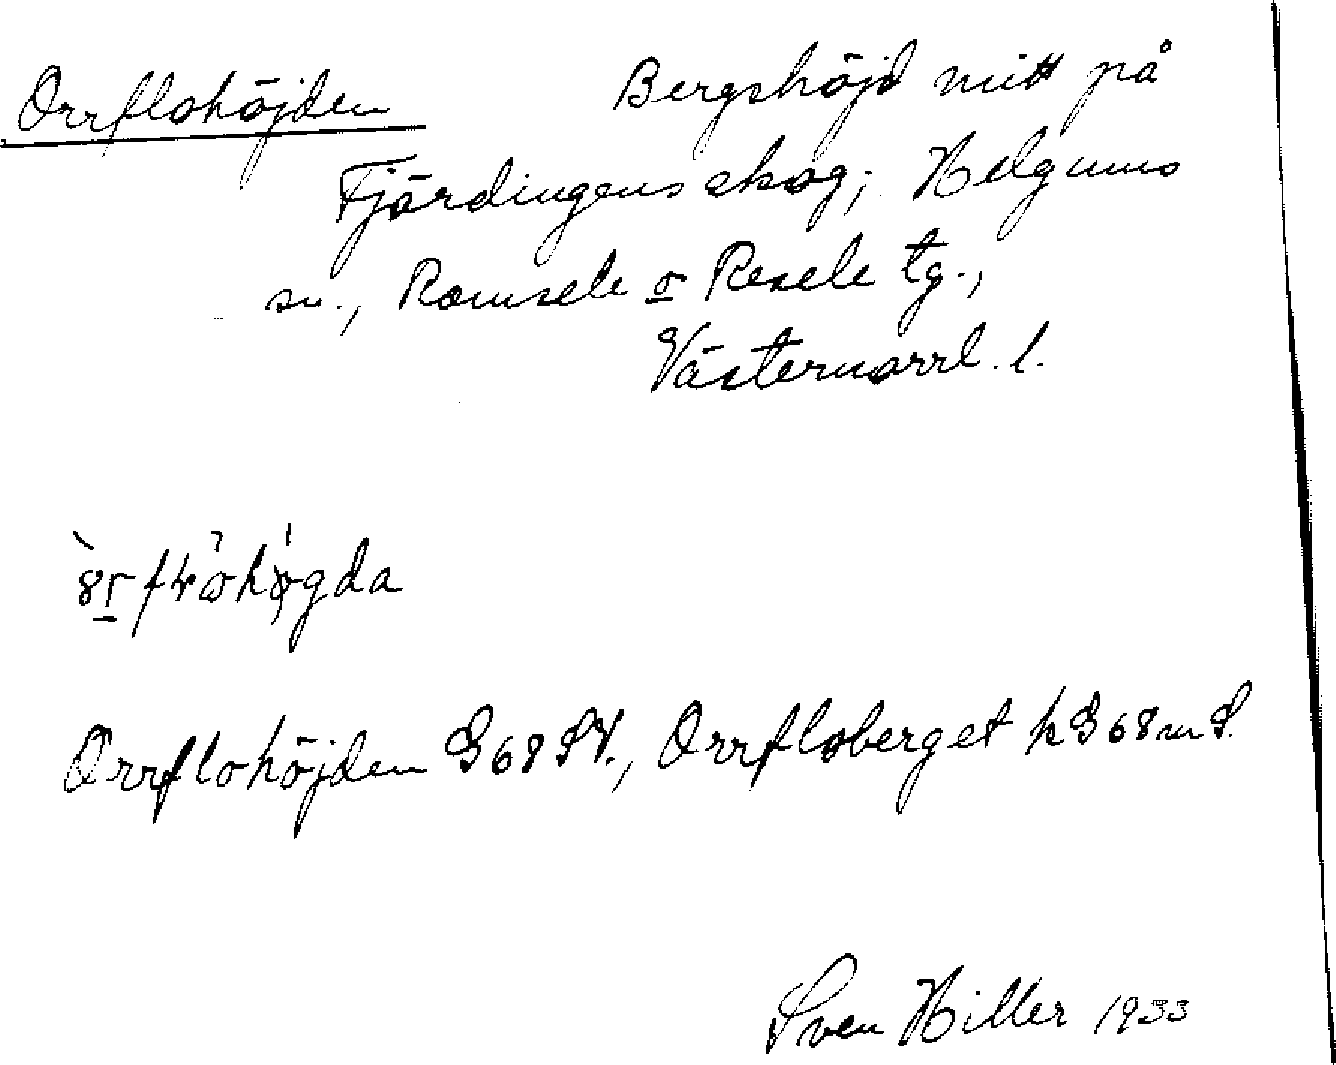 Orrflohöjden Bergshöjd mitt på
Fjärdingens skog; Helgums
sn., Ramsele o Resele tg.,
Västernorrl. l.
Orrflohöjden G68SV., Orrfloberget kG68
Sven Hiller 1933